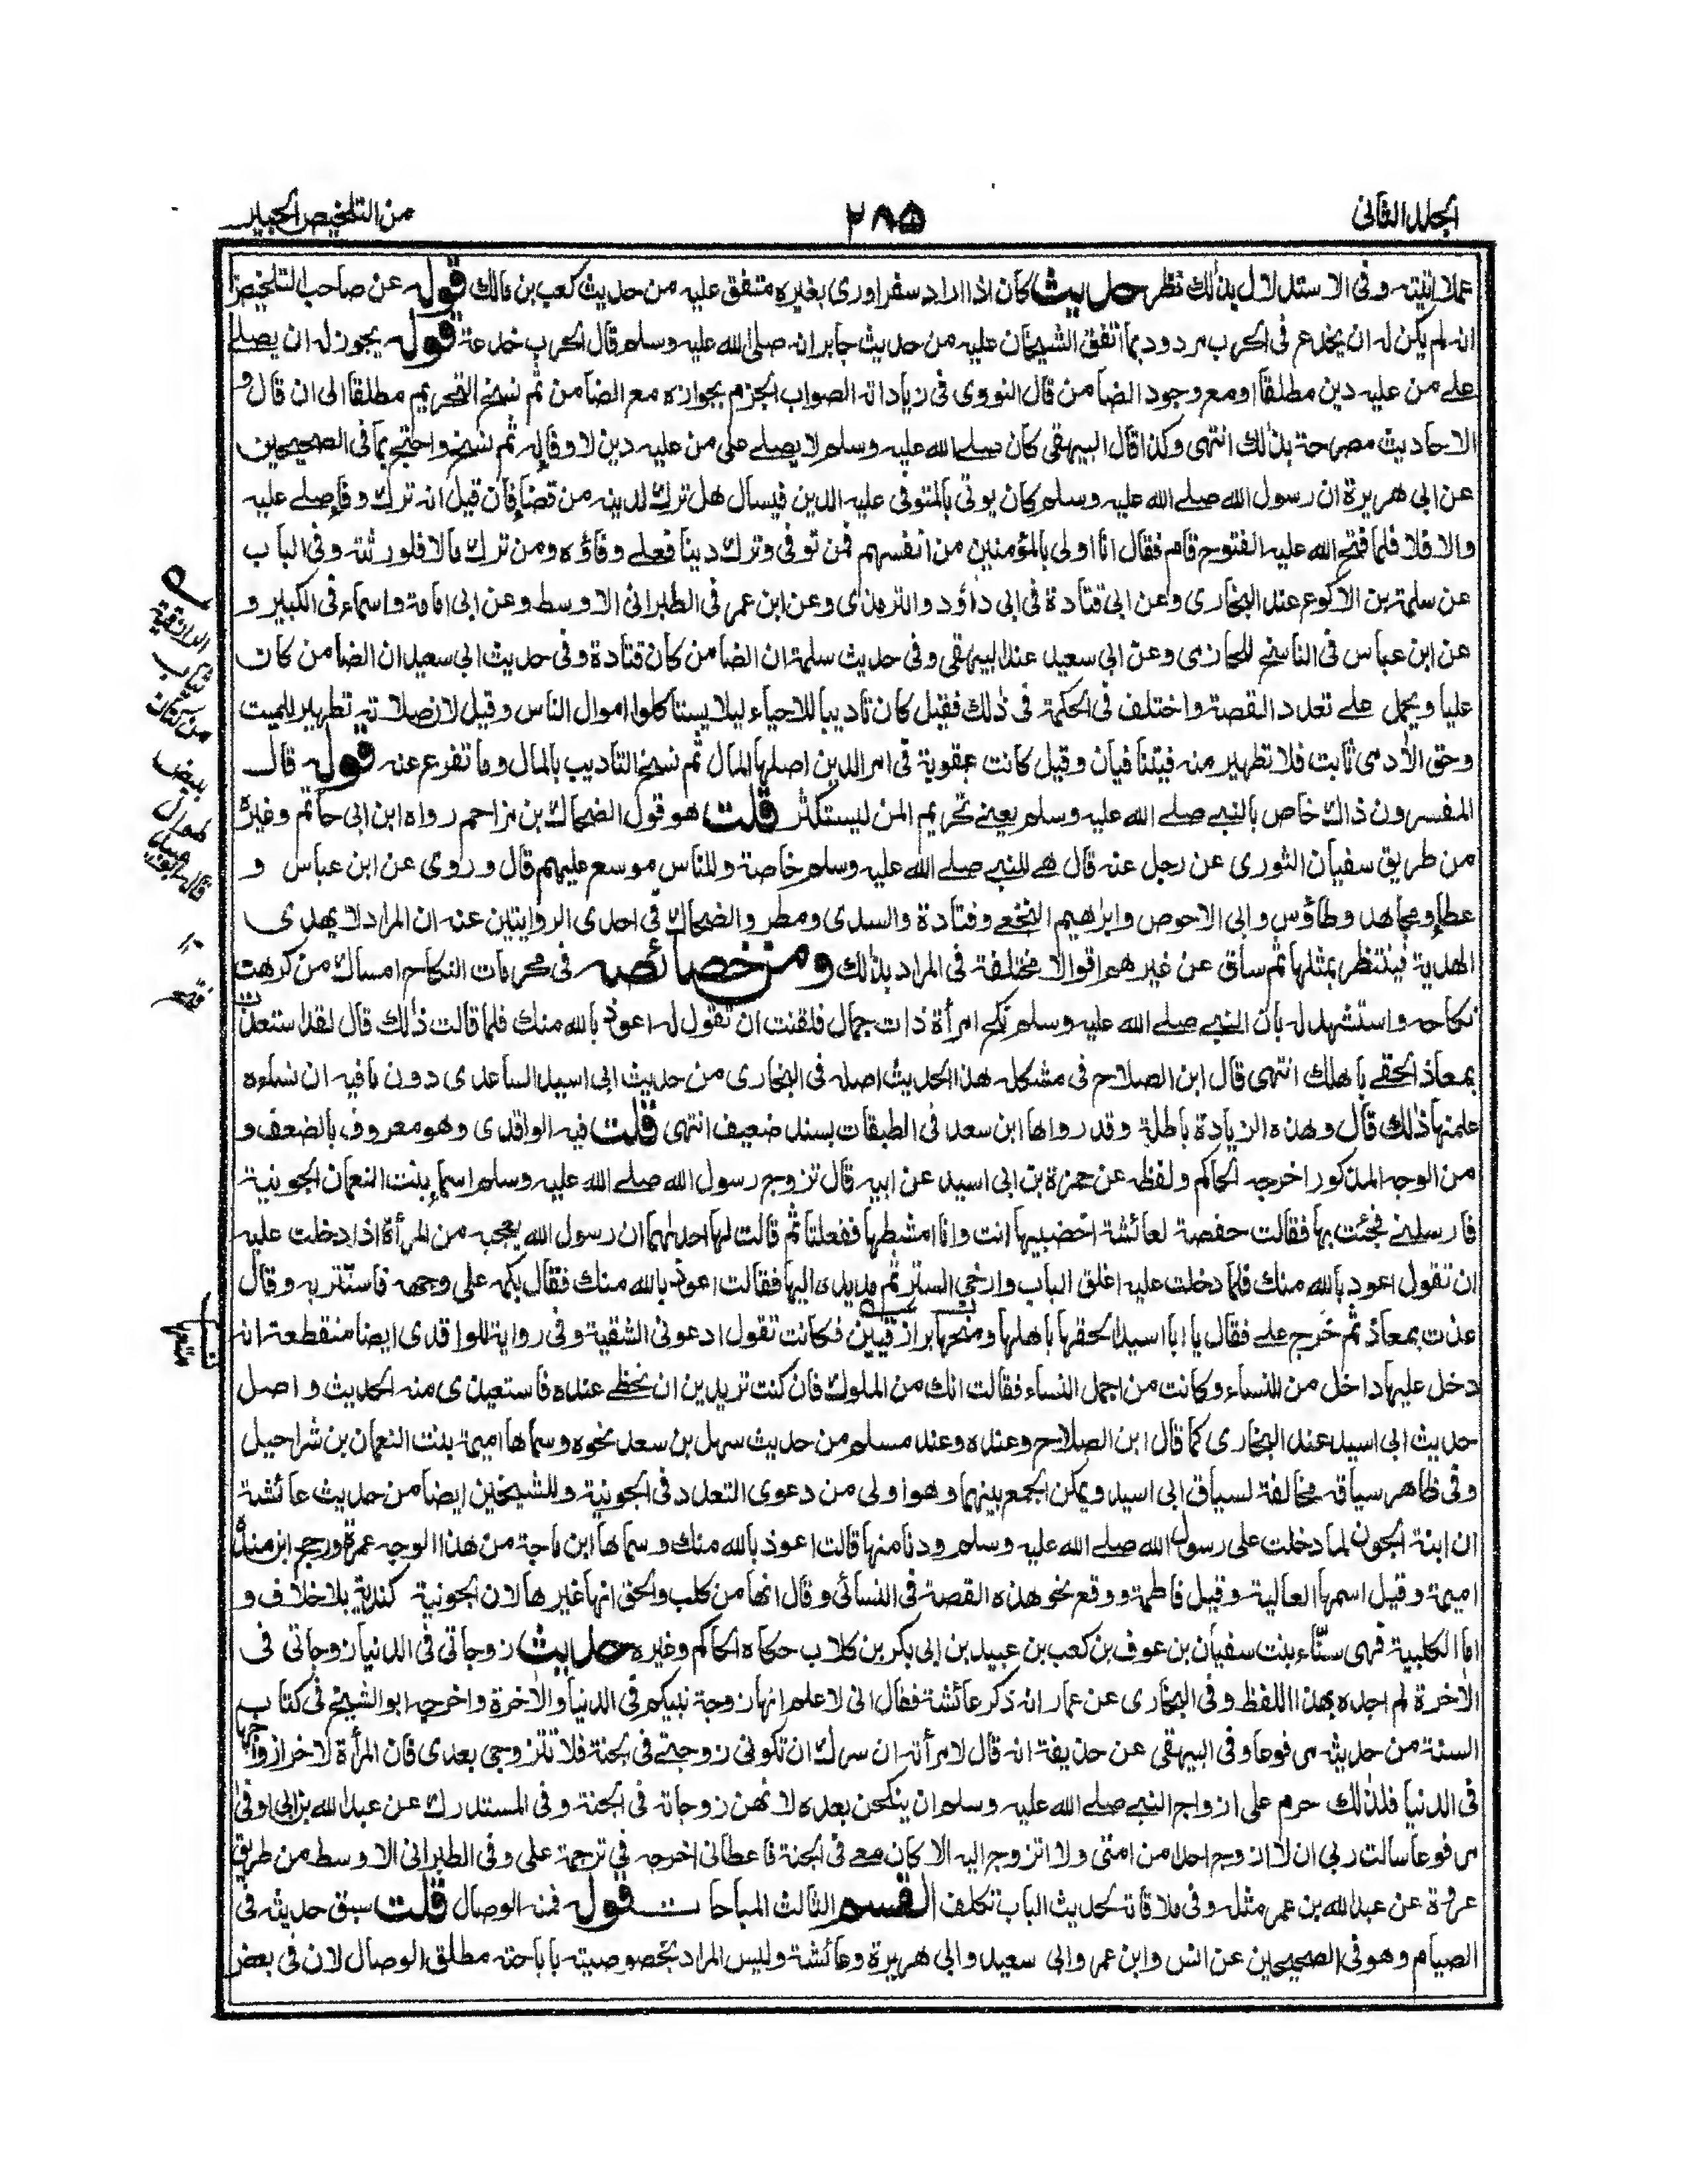 الجلد الثانى
٢٨٥
من التلخيص الحبير
علانيته وفى الاستدلال بذلك نظر حديث كان اذا اراد سفرا ورى بغيره متفق عليه من حديث كعب بن مالك قوله عن صاحب التلخيص
انه لم يكن له ان يخدع فى الحرب مردود بما اتفق الشيخان عليه من حديث جابر انه صلى الله عليه وسلم قال الحرب خدعة قوله يجوز له ان يصلے
علے من عليه دين مطلقا ومع وجود الضامن قال النووى فى زياداته الصواب الجزم بجوازه مع الضامن ثم نسخ التحريم مطلقا الى ان قال و
الاحاديث مصرحة بذلك انتهى وكذا قال البيهقى كان صلے الله عليه وسلم لا يصلے على من عليه دين لا وفاء له ثم نسخ واحتج بما فى الصحيحين
عن ابى هريرة ان رسول الله صلے الله عليه وسلم كان يوتى بالمتوفى عليه الدين فيسأل هل ترك لدينه من قضاء فان قيل انه ترك وفاء صلے عليه
والا فلا فلما فتح الله عليه الفتوح قام فقال انا اولى بالمؤمنين من انفسهم فمن توفى وترك دينا فعلے وفاؤه ومن ترك مالا فلورثته وفى الباب
عن سلمة بن الاكوع عند البخارى وعن ابى قتادة فى ابى داؤد والترمذى وعن ابن عمر فى الطبرانى الاوسط وعن ابى امامة واسماء فى الكبير و
عن ابن عباس فى الناسخ للحازمى وعن ابى سعيد عند البيهقى وفى حديث سلمة ان الضامن كان قتادة وفى حديث ابى سعيد ان الضامن كان
عليا ويحمل علے تعدد القصة واختلف فى الحكمة فى ذلك فقيل كان تاديبا للاحياء ليلا يستأكلوا اموال الناس وقيل لان صلاته تطهير للميت
وحق الآدمى ثابت فلا تطهير منه فيتنافيان وقيل كانت عقوبة فى امر الدين اصلها المال ثم نسخ التاديب بالمال وما تفرع عنه قوله قال
المفسرون ذاك خاص بالنبے صلے الله عليه وسلم يعنے تحريم المن ليستكثر قلت هو قول الضحاك بن مزاحم رواه ابن ابى حاتم وغيره
من طريق سفيان الثورى عن رجل عنه قال هے للنبے صلے الله عليه وسلم خاصة وللناس موسع عليهم قال وروى عن ابن عباس و
عطاء ومجاهد وطاؤس وابى الاحوص وابراهيم النخعے وقتادة والسدى ومطر والضحاك فى احدى الروايتين عنه ان المراد لا يهدى
الهدية فينتظر بمثلها ثم ساق عن غيرهم اقوالا مختلفة فى المراد بذلك ومن خصائصه فى محرمات النكاح امساك من كرهت
نكاحه واستشهد له بان النبے صلے الله عليه وسلم نكح امرأة ذات جمال فلقنت ان تقول له اعوذ بالله منك فلما قالت ذلك قال لقد استعذت
بمعاذ الحقے باهلك انتهى قال ابن الصلاح فى مشكله هذا الحديث اصله فى البخارى من حديث ابى اسيد الساعدى دون ما فيه ان نساءه
علمنها ذلك قال وهذه الزيادة باطلة وقد رواها ابن سعد فى الطبقات بسند ضعيف انتهى قلت فيه الواقدى وهو معروف بالضعف و
من الوجه المذكور اخرجه الحاكم ولفظه عن حمزة بن ابى اسيد عن ابيه قال تزوج رسول الله صلے الله عليه وسلم اسماء بنت النعمان الجونية
فارسلنے فجئت بها فقالت حفصة لعائشة اخضبيها انت وانا امشطها ففعلتا ثم قالت لها احداهما ان رسول الله يعجبه من المرأة اذا دخلت عليه
ان تقول اعوذ بالله منك فلما دخلت عليه اغلق الباب وارخى الستر ثم مد يده اليها فقالت اعوذ بالله منك فقال بكمه على وجهه فاستتر به وقال
عذت بمعاذ ثم خرج علے فقال يا ابا اسيد الحقها باهلها ومتعها برازقيين فكانت تقول ادعونى الشقية وفى رواية للواقدى ايضا منقطعة انه
دخل عليها داخل من النساء وكانت من اجمل النساء فقالت انك من الملوك فان كنت تريدين ان تحظے عنده فاستعيذى منه الحديث واصل
حديث ابى اسيد عند البخارى كما قال ابن الصلاح وعنده وعند مسلم من حديث سهل بن سعد نحوه وسماها اميمة بنت النعمان بن شراحيل
وفى ظاهر سياقه مخالفة لسياق ابى اسيد ويمكن الجمع بينهما وهو اولى من دعوى التعدد فى الجونية وللشيخين ايضا من حديث عائشة
ان ابنة الجون لما دخلت على رسول الله صلے الله عليه وسلم ودنا منها قالت اعوذ بالله منك وسماها ابن ماجة من هذا الوجه عمرة ورجح ابن مندة
اميمة وقيل اسمها العالية وقيل فاطمة ووقع نحو هذه القصة فى النسائى وقال انها من كلب والحق انها غيرها لان الجونية كندية بلا خلاف و
اما الكلبية فهى سنّاء بنت سفيان بن عوف بن كعب بن عبيد بن ابى بكر بن كلاب حكاه الحاكم وغيره حديث زوجاتى فى الدنيا زوجاتى فى
الآخرة لم اجده بهذا اللفظ وفى البخارى عن عمار انه ذكر عائشة فقال انى لا علم انها زوجة نبيكم فى الدنيا والآخرة واخرجه ابو الشيخ فى كتاب
السنة من حديثه مرفوعا وفى البيهقى عن حذيفة انه قال لامرأته ان سرك ان تكونى زوجتے فى الجنة فلا تتزوجى بعدى فان المرأة لاخر ازواجها
فى الدنيا فلذلك حرم على ازواج النبے صلے الله عليه وسلم ان ينكحن بعده لانهن زوجاته فى الجنة وفى المستدرك عن عبد الله بن ابى اوفى
مرفوعا سألت ربى ان لا ازوج احدا من امتى ولا اتزوج اليه الا كان معے فى الجنة فاعطانى اخرجه فى ترجمة على وفى الطبرانى الاوسط من طريق
عروة عن عبد الله بن عمر مثله وفى ملاقاته لحديث الباب تكلف القسم الثالث المباحات قوله فمنه الوصال قلت سبق حديثه فى
الصيام وهو فى الصحيحين عن انس وابن عمر وابى سعيد وابى هريرة وعائشة وليس المراد بخصوصيته باباحته مطلق الوصال لان فى بعض